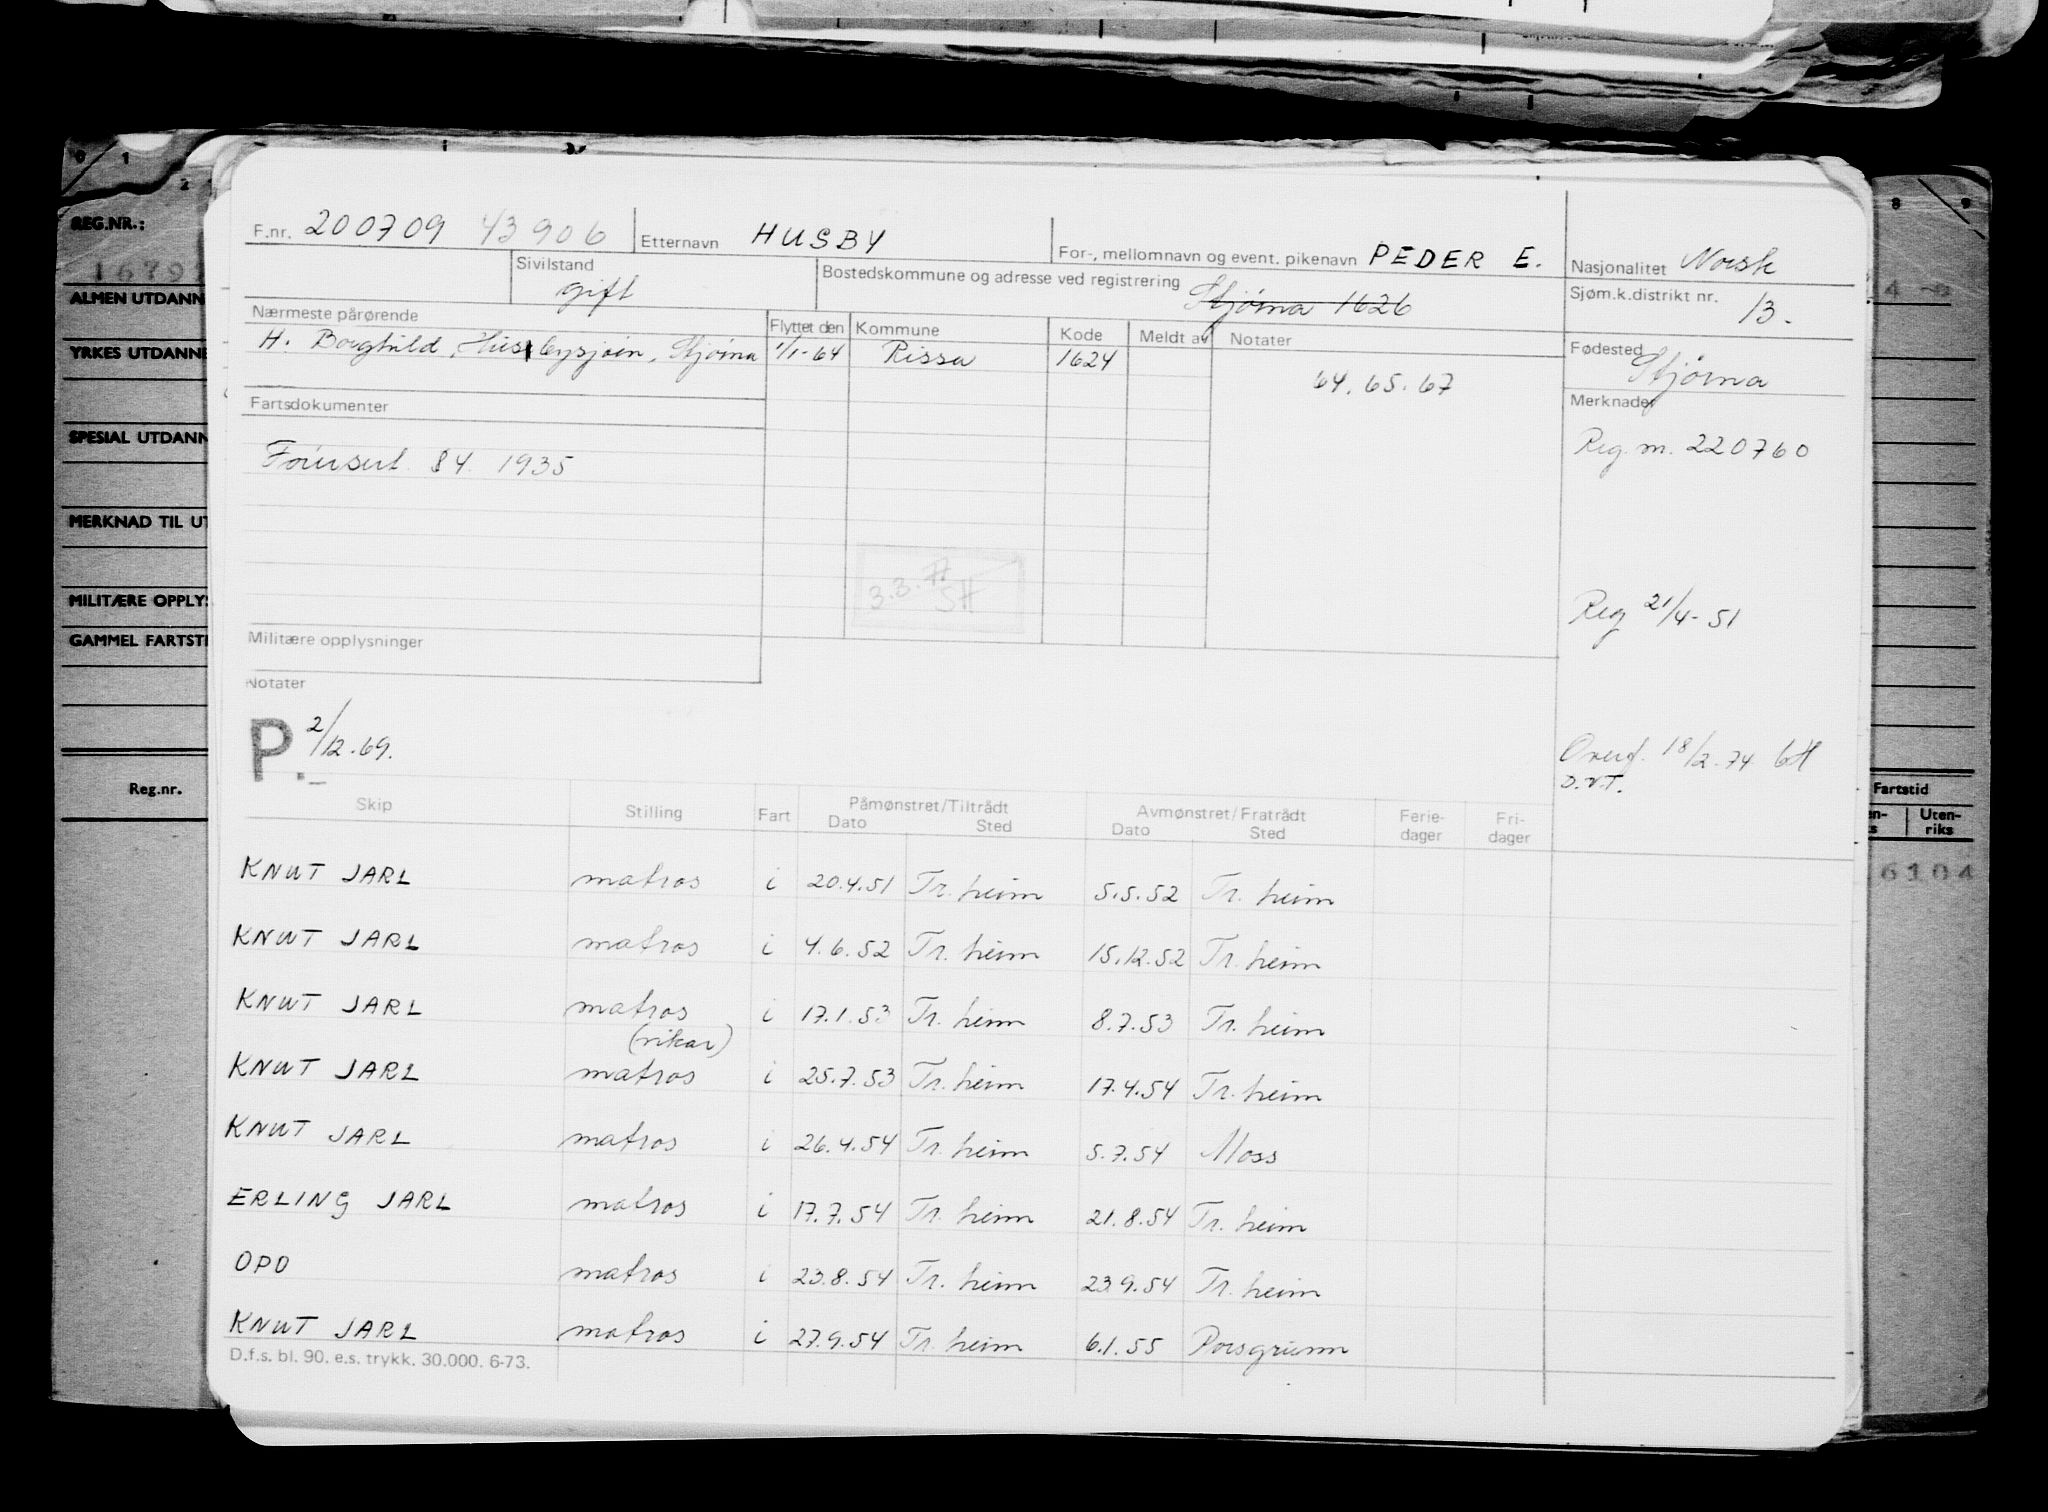 REG.NR.:
ALMEN UTDANN
YRKES UTDANNE
SPESIAL UTDANN
MERKNAD TIL UT
MILITÆRE OPPLYS
GAMMEL FARTSTI
Reg.nr.
F.nr. 200709 43906 Etternavn HUSBY For-, mellomnavn og event. pikenavn PEDER E. Nasjonalitet Norsk
Sivilstand gift Bostedskommune og adresse ved registrering Stjørna 1626 Sjøm.k.distrikt nr. 13.
Nærmeste pårørende Flyttet den Kommune Kode Meldt av Notater Fødested Stjørna
H. Borghild, Husbysjøen, Stjørna 1/1-64 Rissa 1624 64. 65. 67
Fartsdokumenter Merknader
84. 1935 Reg. m. 220760
3.3.77 SH
Reg 21/4-51
Militære opplysninger
Notater
P. 2/12.69.
Overf. 18/2.74
D.V.T.
Skip Stilling Fart Påmønstret/Tiltrådt Avmønstret/Fratrådt Ferie- Fri- Fartstid
Dato Sted Dato Sted dager dager
en- Uten-
ks riks
6104
KNUT JARL matros i 20.4.51 Tr.heim 5.5.52 Tr.heim
KNUT JARL matros i 4.6.52 Tr.heim 15.12.52 Tr.heim
KNUT JARL matros i 17.1.53 Tr.heim 8.7.53 Tr.heim
(vikar)
KNUT JARL matros i 25.7.53 Tr.heim 17.4.54 Tr.heim
KNUT JARL matros i 26.4.54 Tr.heim 5.7.54 Moss
ERLING JARL matros i 17.7.54 Tr.heim 21.8.54 Tr.heim
OPO matros i 23.8.54 Tr.heim 23.9.54 Tr.heim
KNUT JARL matros i 27.9.54 Tr.heim 6.1.55 Porsgrunn
D.f.s. bl. 90. e.s. trykk. 30.000. 6-73.